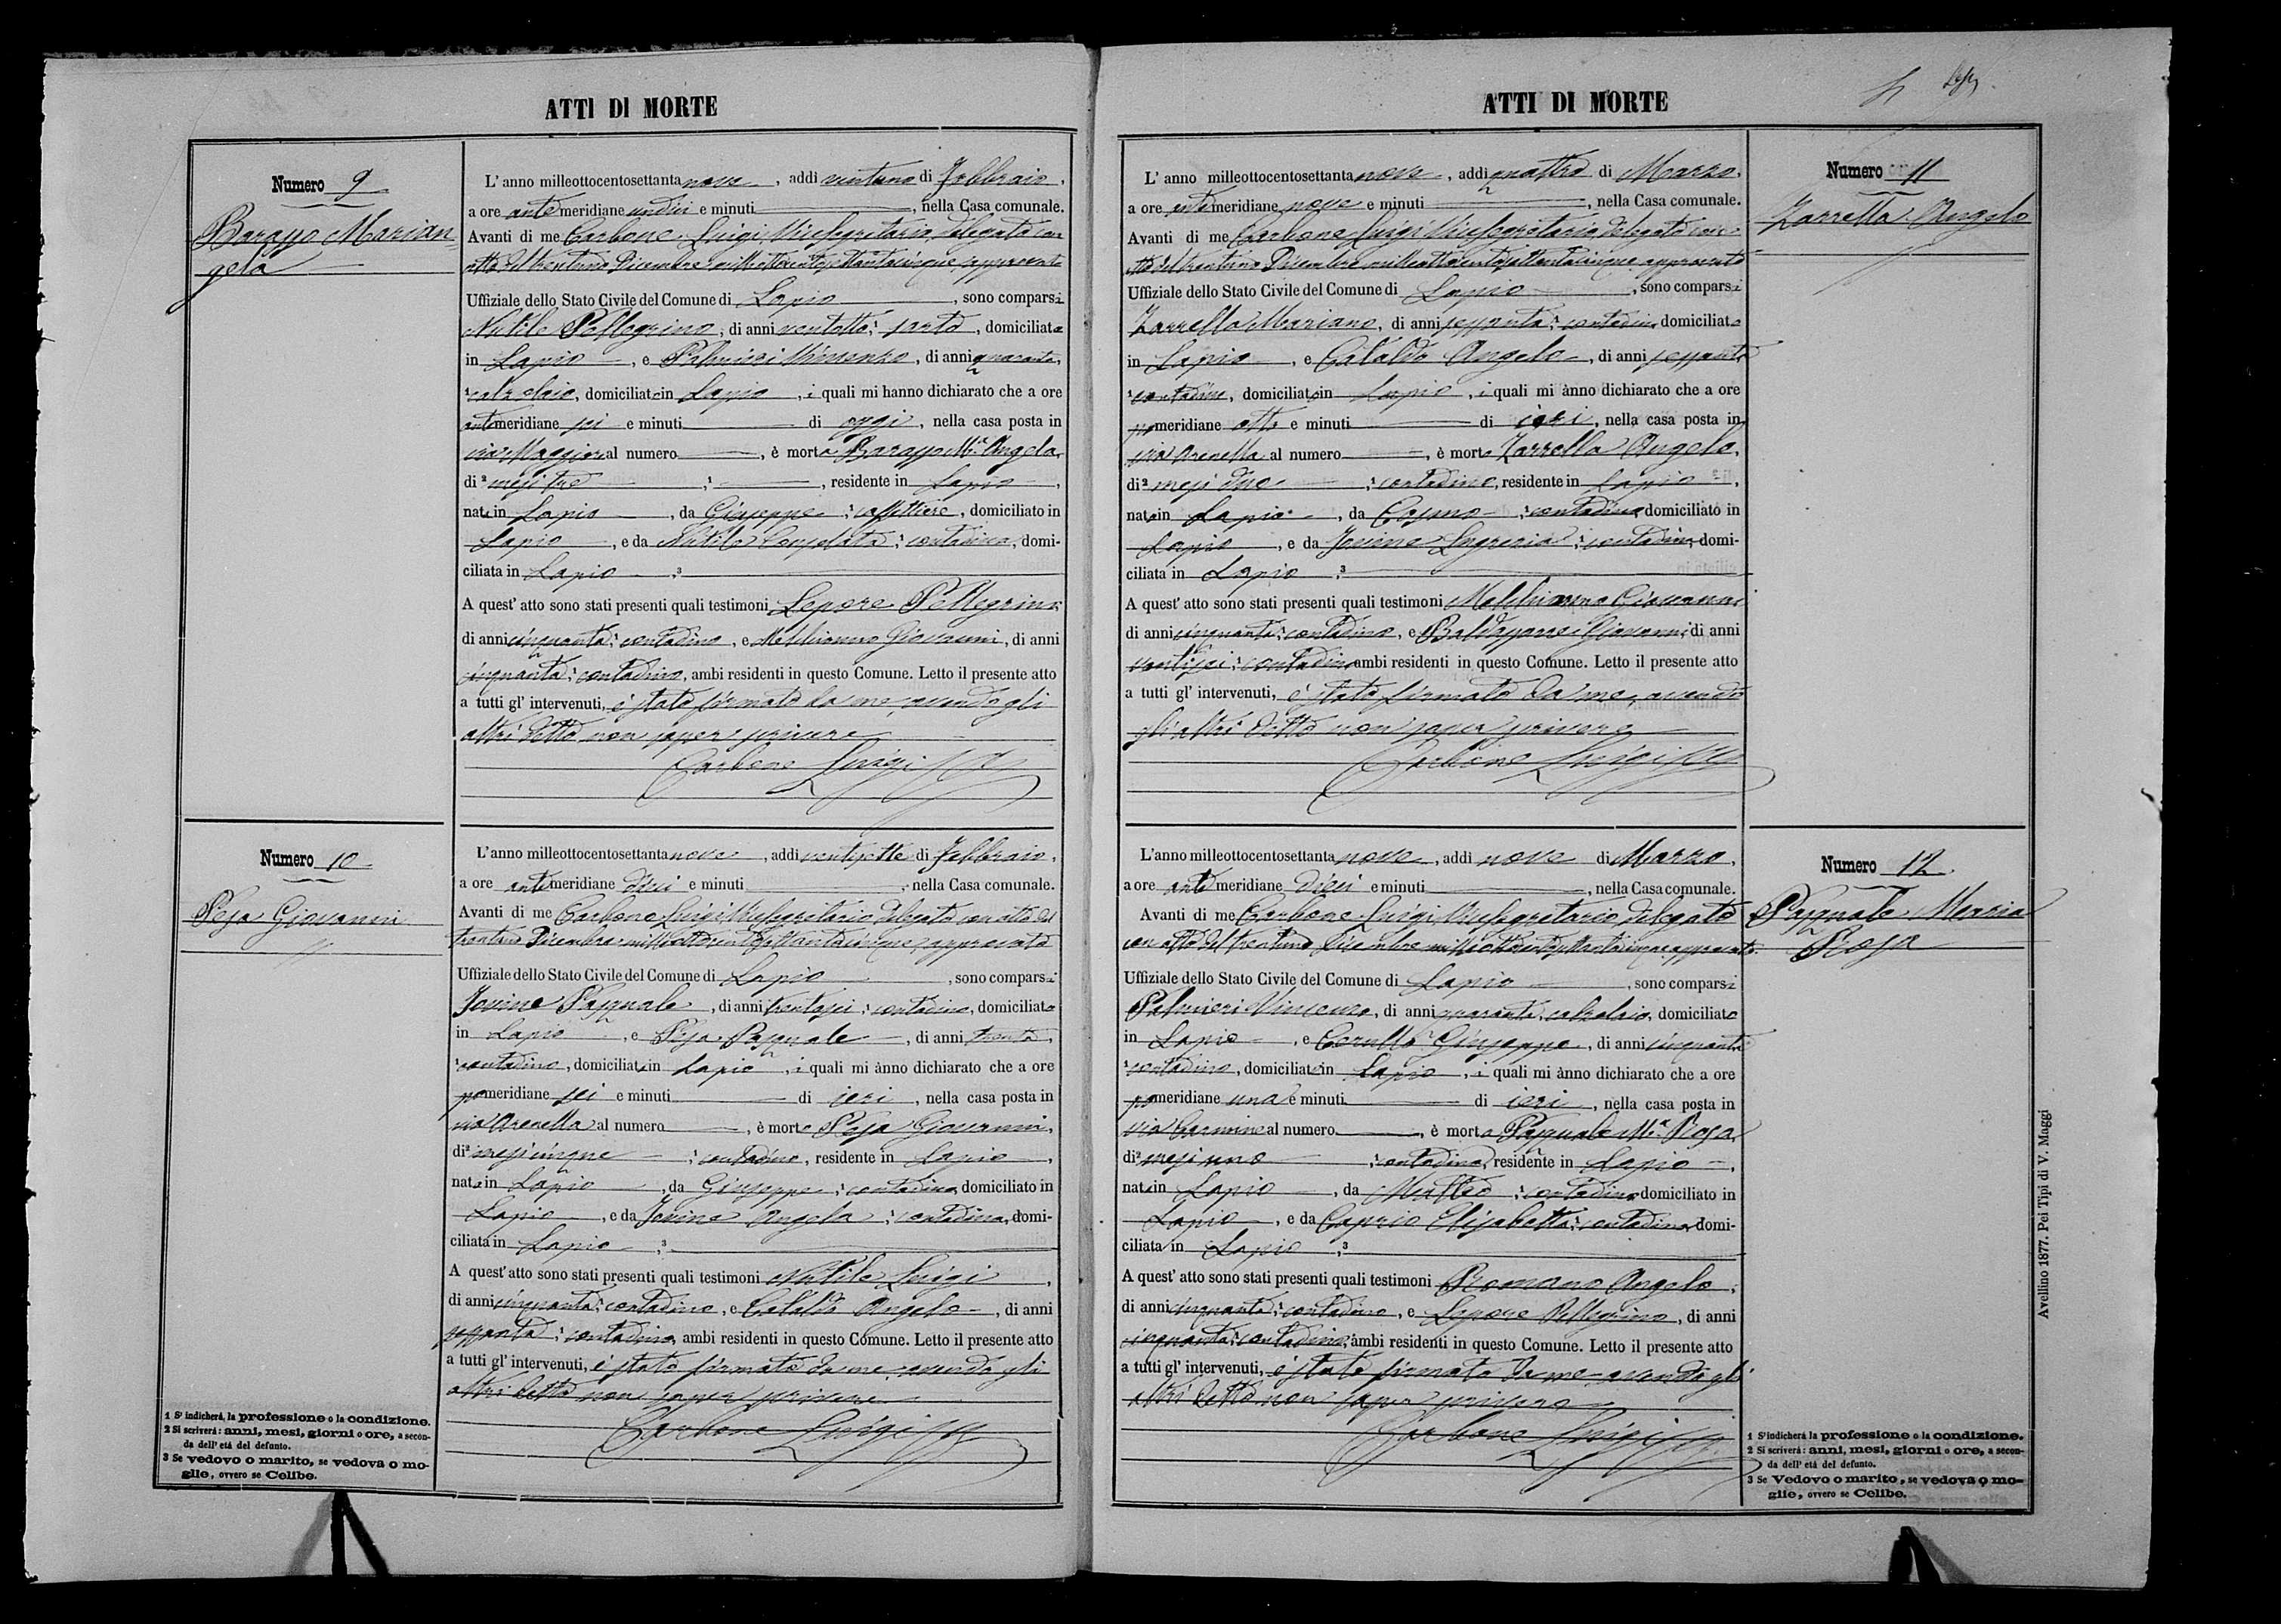 ATTI DI MORTE
Numero 9
Barasso Marian
gela
L' anno milleottocentosettanta nove, addì ventuno di Febbraio,
a ore antemeridiane undici e minuti, nella Casa comunale.
Avanti di me Carbone Luigi Vicesegretario delegato con
atto del trentuno Dicembre milleottocentosettantacinque approvato
Uffiziale dello Stato Civile del Comune di Lapio, sono comparsi
Nutile Pellegrino, di anni ventotto, sarto, domiciliato
in Lapio, e Palmieri Vincenzo, di anni quaranta,
1 calzolaio, domiciliato in Lapio, i quali mi hanno dichiarato che a ore
antemeridiane sei e minuti di oggi, nella casa posta in
via Maggiore al numero, è morta Barasso Mª Angela,
di 2 mesi tre, residente in Lapio,
nata in Lapio, da Giuseppe, domiciliato in
Lapio, e da Nutile Consolata, contadina, domi-
ciliata in Lapio 3
A quest' atto sono stati presenti quali testimoni Lepore Pellegrino,
di anni cinquanta, contadino, e Melchionno Giovanni, di anni
cinquanta, contadino, ambi residenti in questo Comune. Letto il presente atto
a tutti gl' intervenuti, è stato firmato da me, avendo gli
altri detto non saper scrivere
Carbone Luigi
Numero 10
Pesa Giovanni
L'anno milleottocentosettanta nove, addì ventisette di Febbraio,
a ore antemeridiane dieci e minuti, nella Casa comunale.
Avanti di me Carbone Luigi Vicesegretario delegato con atto del
trentuno Dicembre milleottocentosettantacinque, approvato
Uffiziale dello Stato Civile del Comune di Lapio, sono comparsi
Jovine Pasquale, di anni trentasei, contadino, domiciliato
in Lapio, e Pesa Pasquale, di anni trenta,
1 contadino, domiciliato in Lapio, i quali mi ànno dichiarato che a ore
pomeridiane sei e minuti di ieri, nella casa posta in
via Arenella al numero, è morto Pesa Giovanni,
di 2 mesi cinque, contadino, residente in Lapio,
nato in Lapio, da Giuseppe, contadino, domiciliato in
Lapio, e da Jovine Angela, contadina, domi-
ciliata in Lapio 3
A quest'atto sono stati presenti quali testimoni Nutile Luigi,
di anni cinquanta, contadino, e Cataldo Angelo, di anni
sessanta, contadino, ambi residenti in questo Comune. Letto il presente atto
a tutti gl' intervenuti, è stato firmato da me, avendo gli
altri detto non saper scrivere
Carbone Luigi
1 S' indicherà, la professione o la condizione.
2 Si scriverà: anni, mesi, giorni o ore, a secon-
da dell' età del defunto.
3 Se vedovo o marito, se vedova o mo-
glie, ovvero se Celibe.
ATTI DI MORTE
Numero 11
Zarrella Angelo
L' anno milleottocentosettanta nove, addì quattro di Marzo,
a ore antemeridiane nove e minuti, nella Casa comunale.
Avanti di me Carbone Luigi Vicesegretario delegato con
atto del trentuno Dicembre milleottocentosettantacinque approvato
Uffiziale dello Stato Civile del Comune di Lapio, sono comparsi
Zarrella Mariano, di anni sessanta, contadino domiciliato
in Lapio, e Cataldo Angelo, di anni sessanta
1 contadino, domiciliato in Lapio, i quali mi ànno dichiarato che a ore
pomeridiane otto e minuti di ieri, nella casa posta in
via Arenella al numero, è morto Zarrella Angelo,
di 2 mesi due, contadino, residente in Lapio,
nato in Lapio, da Cosmo, contadino domiciliato in
Lapio, e da Jovine Lugrezia, contadina, domi-
ciliata in Lapio 3
A quest' atto sono stati presenti quali testimoni Melchionno Giovanni,
di anni cinquanta, contadino, e Baldassarre Giovanni, di anni
ventisei, contadino ambi residenti in questo Comune. Letto il presente atto
a tutti gl' intervenuti, è stato firmato da me, avendo
gli altri detto non saper scrivere
Carbone Luigi
Numero 12
Pasquale Maria
Rosa
L'anno milleottocentosettanta nove, addì nove di Marzo,
a ore antemeridiane dieci e minuti, nella Casa comunale.
Avanti di me Carbone Luigi Vicesegretario delegato
con atto del trentuno Dicembre milleottocentosettantacinque approvato
Uffiziale dello Stato Civile del Comune di Lapio, sono comparsi
Palmieri Vincenzo, di anni quaranta, calzolaio, domiciliato
in Lapio, e Cerullo Giuseppe, di anni cinquanta
1 contadino, domiciliato in Lapio, i quali mi ànno dichiarato che a ore
pomeridiane una e minuti di ieri, nella casa posta in
via Carmine al numero, è morta Pasquale Mª Rosa
di 2 mesi uno, contadina, residente in Lapio,
nata in Lapio, da Matteo, contadino domiciliato in
Lapio, e da Caprio Elisabetta, contadina, domi-
ciliata in Lapio 3
A quest' atto sono stati presenti quali testimoni Romano Angelo,
di anni cinquanta, contadino, e Lepore Pellegrino, di anni
cinquanta, contadino, ambi residenti in questo Comune. Letto il presente atto
a tutti gl' intervenuti, è stato firmato da me, avendo gli
altri detto non saper scrivere
Carbone Luigi
1 S'indicherà la professione o la condizione.
2 Si scriverà: anni, mesi, giorni e ore, a secon-
da dell' età del defunto.
3 Se Vedovo o marito, se vedova o mo-
glie, ovvero se Celibe.
Avellino 1877. Pei Tipi di V. Maggi